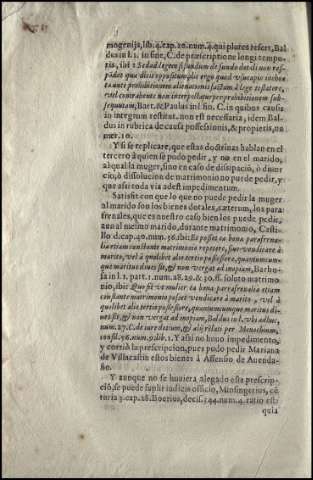 mogenija, lib. 4. cap. 20. num. 4. qui plures refert, Bal-
dus in l. 1. in fine, C. de præscriptione longi tempo-
ris, ibi: Sed ad legem
quæ dicit ergo quod
te prohibitionem alienationis factam à lege testatore,
vel contrahente non interpellatur per prohibitionem sub-
sequutam, Bart. & Paulus in l. fin. C. in quibus causis
in integrum restitut. non est necessaria, idem Bal-
dus in rubrica de causa possessionis, & propietis, nu
mer. 10.
Y si se replicare, que estas doctrinas hablan en el
tercero à quien se podo pedir, y no en el marido,
al qual la muger, sino en caso de dissipaciò, ò divor
cio, ò dissolucion de matrimonio no puede pedir, y
que assi toda via adest impedimentum.
Satisfit con que lo que no puede pedir la muger
al marido son los bienes dotales, cæterum, los para-
frenales, que es nuestro caso bien los puede pedir,
aun al mesmo marido, durante matrimonio, Casti-
llo d. cap. 40. num. 56. ibi: Et posset ea bona parafrena-
lia etiam constante matrimonio repetere, sive vendicare à
marito, vel à quolibet alio tertio possessore, quantumcum-
que maritus dives sit, & non vergat ad inopiam, Barbo-
sa in l. 1. part. 1. num. 28. 29. & 30. ff. soluto matrimo-
nio, ibi: Quo fit ve mulier ea bona parrafrenalia etiam
constante matrimonio posset vendicare à marito, vel à
quolibet alio tertio possessore, quantumcumque maritus di-
ves sit, & non vergat ad inopiam, Baldus in l. ubi adhuc,
num. 27. C. de iure dotium, & alij relati per Menochium,
consil. 76. num. 9. lib. 1. Y assi no huvo impedimento,
y corriò la prescripcion, pues pudo pedir Mariana
de Villacastin estos bienes à Assensio de Avenda-
ño.
Y aunque no se huviera alegado esta prescrip-
ciò, se puede suplir iudicis officio, Minsingerius, cẽ
turia 3. cap. 28. Boerius, decis. 344. num. 4. ratio est
quia